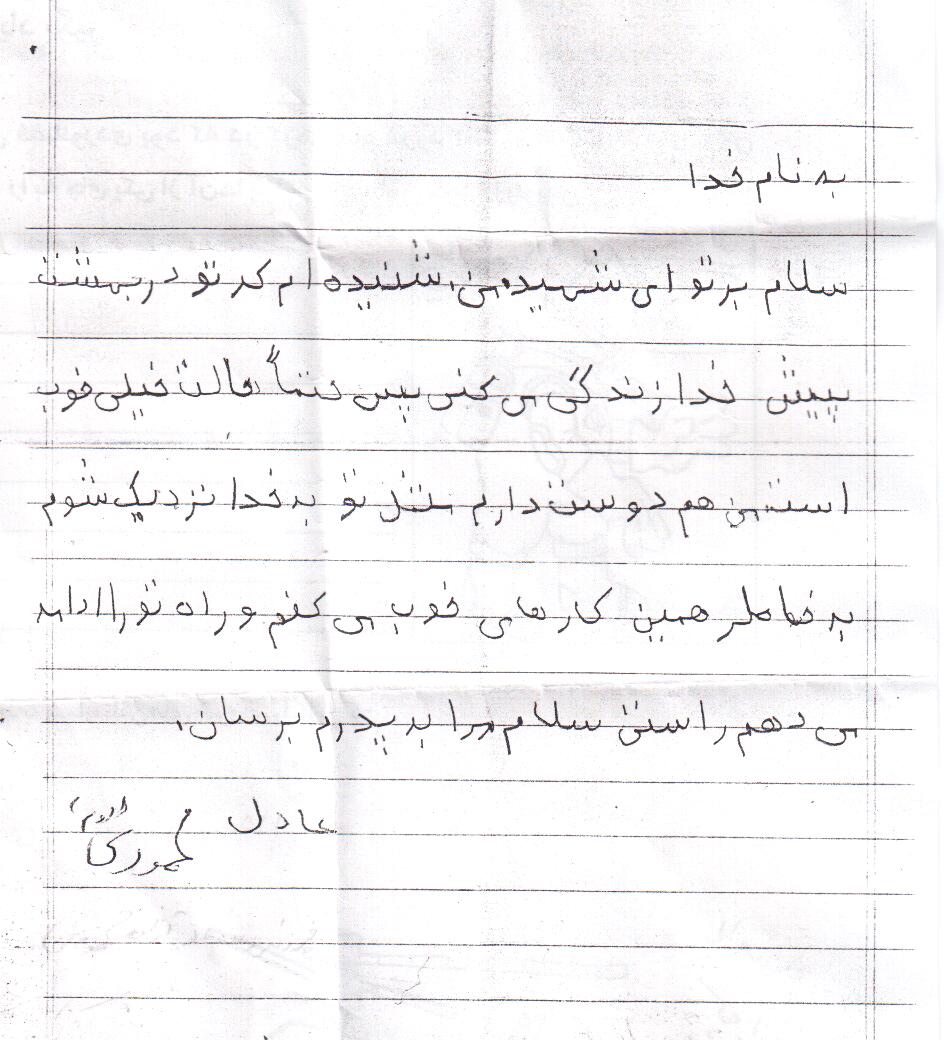 به نام خدا
سلام بر تو ای شهید من شنیده ام که تو در بهشت
پیش خدا زندگی می کنی پس حتماً حالت خیلی خوب
است من هم دوست دارم مثل تو به خدا نزدیک شوم
به خاطر همین کارهای خوب می کنم و راه تو را ادامه
می دهم راستی سلام مرا به پدرم برسان.
عادل